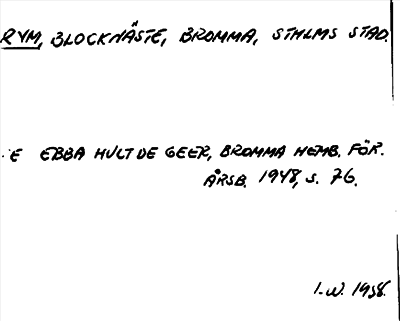 RYM, BLOCKNÄSTE, BROMMA, STHLMS STAD.
E EBBA HULT DE GEER, BROMMA HEMB. FÖR.
ÅRSB. 1948, S. 76.
I.W. 1958.